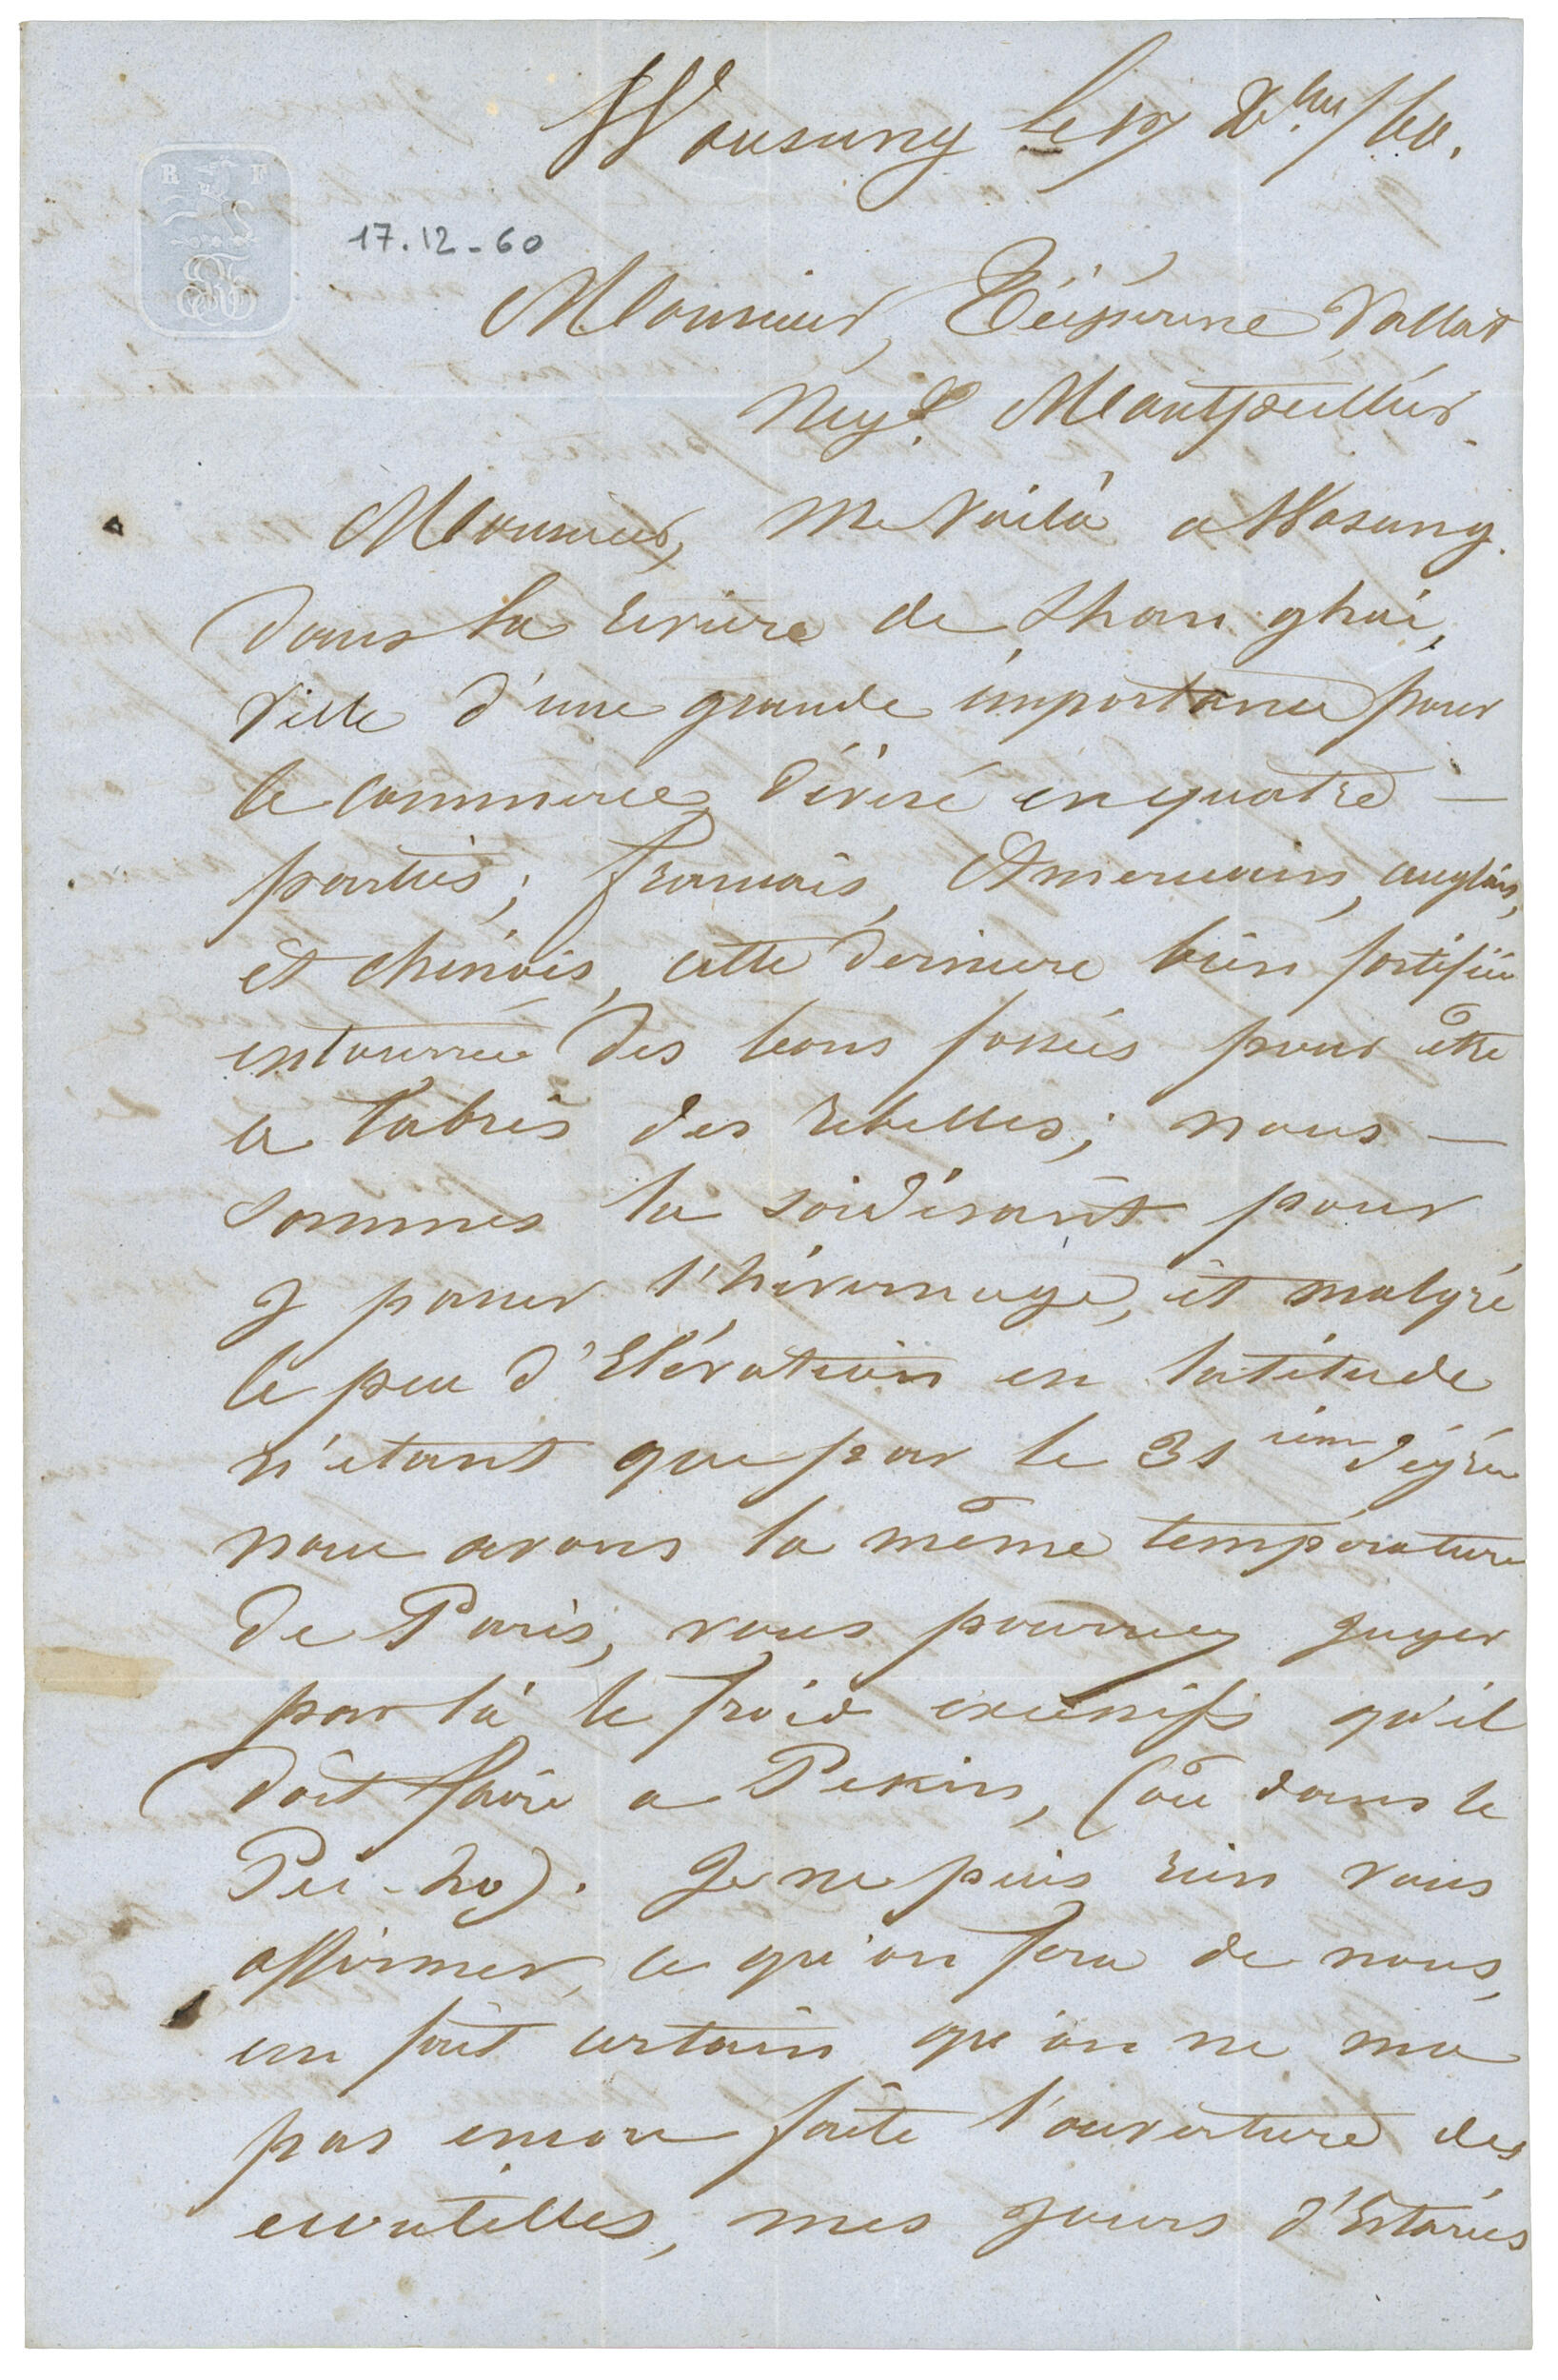 Wousung le 17 Xbre/60.
R F
17.12-60
Monsieur, Vallat
Negt. Montpellier.
Monsieur, me voila a Wosung.
dans la rivière de Shan ghai,
ville d'une grande importance pour
le commerce, divisé en quatre —
parties; francais, Americain, anglais,
et chinois, cette derniere bien fortifiée
entourrée des bons fossés pour être
a l'abris des rebelles; nous —
sommes la soidisant pour
y passer l'hivernage, et malgré
le peu d'élévation en latitude
n'étant que par le 31 ième dégrée
nous avons la même température
de Paris, vous pourrez juger
par là le froid excessifs qu'il
doit faire a Pekin, (où dans le
Pei-ho). Je ne puis rien vous
affirmer, ce qu'on fera de nous,
un fait certain qu'on ne ma
pas encore faite l'ouverture des
ecoutilles, mes jours d'Estaries